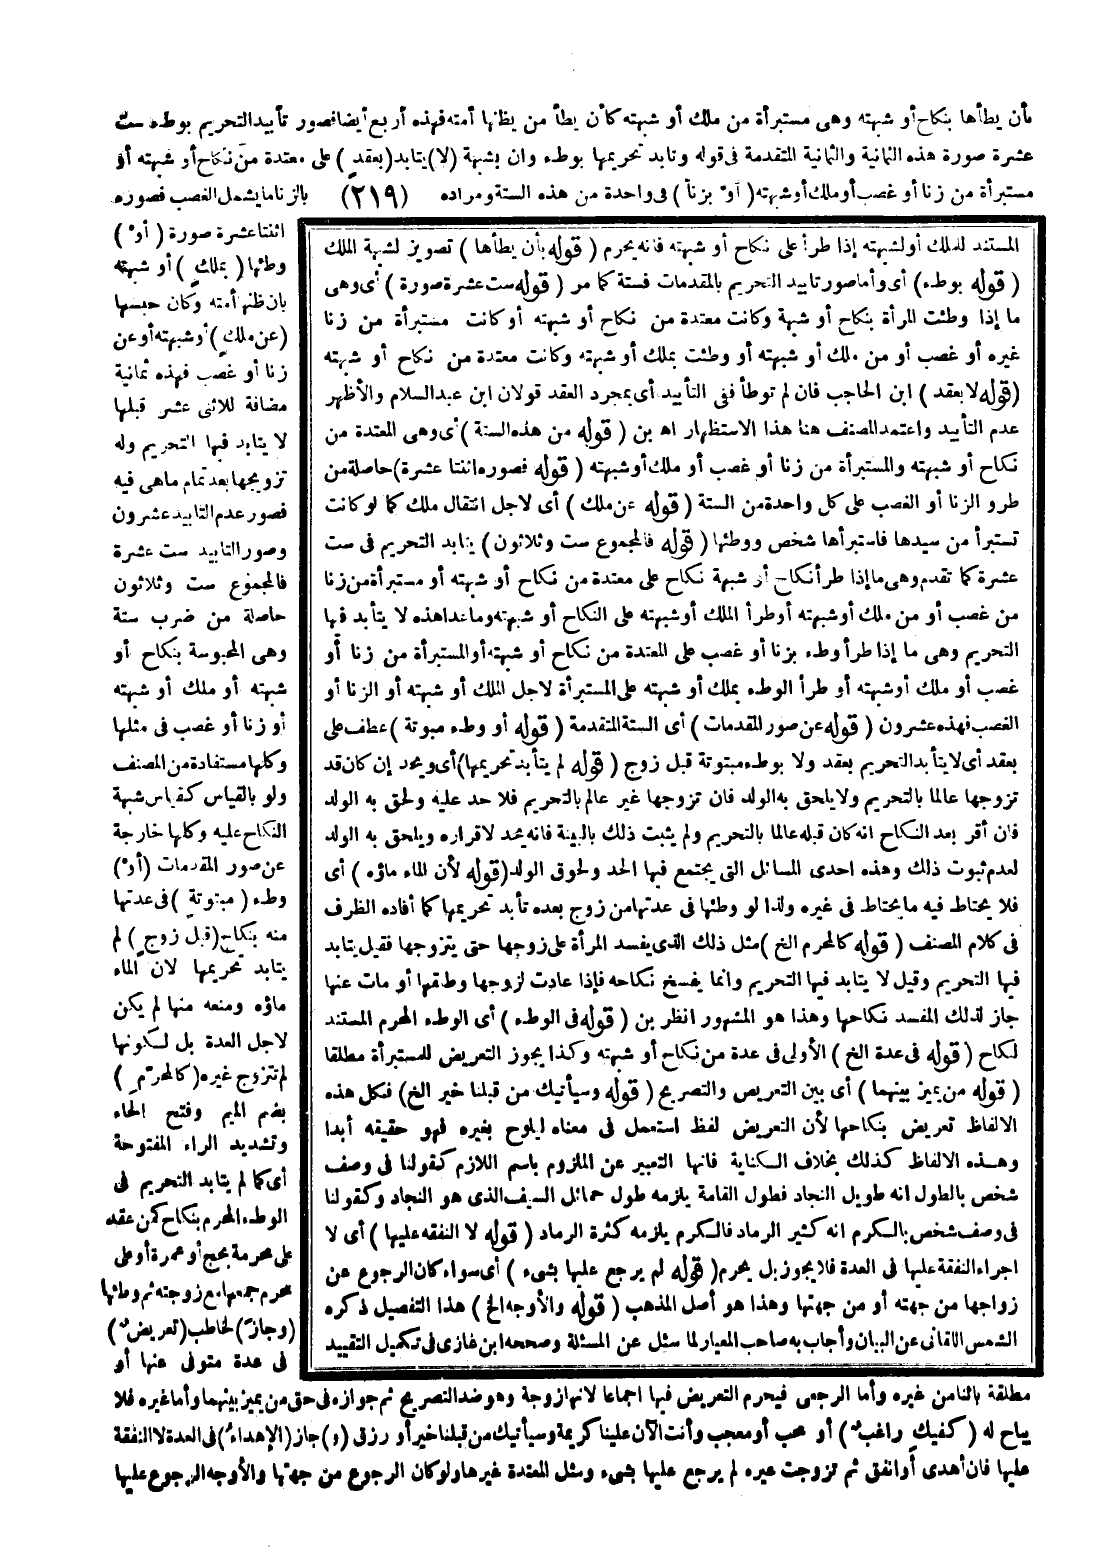 بأن يطأها بنكاح أو شبهته وهى مستبرأة من ملك أو شبهته كأن يطأ من يظنها أمته فهذه أربع أيضا فصور تأبيد التحريم بوطء ست
عشرة صورة هذه الثمانية والثمانية المتقدمة فى قوله وتابد تحريمها بوطء وان بشبهة (لا) يتابد (بعقد) على معتدة من نكاح أو شبهته أو
مستبرأة من زنا أو غصب أو ملك أو شبهته (أو بزنا) فى واحدة من هذه الستة ومراده (٢١٩) بالزنا ما يشمل الغصب فصوره
اثنتا عشرة صورة (أو)
وطئها (بملك) أو شبهته
بان ظنها أمته وكان حبسها
(عن ملك) أو شبهته أو عن
زنا أو غصب فهذه ثمانية
مضافة للاثنى عشر قبلها
لا يتابد فيها التحريم وله
تزويجها بعد تمام ماهى فيه
فصور عدم التابيد عشرون
وصور التابيد ست عشرة
فالمجموع ست وثلاثون
حاصلة من ضرب ستة
وهى المحبوسة بنكاح أو
شبهته أو ملك أو شبهته
أو زنا أو غصب فى مثلها
وكلها مستفادة من المصنف
ولو بالقياس كقياس شبهة
النكاح عليه وكلها خارجة
عن صور المقدمات (أو)
وطء (مبتوتة) فى عدتها
منه بنكاح (قبل زوج) لم
يتابد تحريمها لان الماء
ماؤه ومنعه منها لم يكن
لاجل العدة بل لكونها
لم تتزوج غيره (كالمحرّم)
بضم الميم وفتح الحاء
وتشديد الراء المفتوحة
أى كما لم يتابد التحريم فى
الوطء المحرم بنكاح كمن عقد
على محرمة بحج أو عمرة أو على
محرم جمعها مع زوجته ثم وطئها
(وجاز) لخاطب (تعريض)
فى عدة متوفى عنها أو
المستند للملك أو لشبهته إذا طرأ على نكاح أو شبهته فانه يحرم (قوله بأن يطأها) تصوير لشبهة الملك
(قوله بوطء) أى وأما صور تابيد التحريم بالمقدمات فستة كما مر (قوله ست عشرة صورة) أى وهى
ما إذا وطئت المرأة بنكاح أو شبهة وكانت معتدة من نكاح أو شبهته أو كانت مستبرأة من زنا
غيره أو غصب أو من ملك أو شبهته أو وطئت بملك أو شبهته وكانت معتدة من نكاح أو شبهته
(قوله لا بعقد) ابن الحاجب فان لم توطأ ففى التأبيد أى بمجرد العقد قولان ابن عبد السلام والأظهر
عدم التأبيد واعتمد المصنف هنا هذا الاستظهار اه بن (قوله من هذه الستة) أى وهى المعتدة من
نكاح أو شبهته والمستبرأة من زنا أو غصب أو ملك أو شبهته (قوله فصوره اثنتا عشرة) حاصلة من
طرو الزنا أو الغصب على كل واحدة من الستة (قوله عن ملك) أى لاجل انتقال ملك كما لو كانت
تستبرأ من سيدها فاستبرأها شخص ووطئها (قوله فالمجموع ست وثلاثون) يتابد التحريم فى ست
عشرة كما تقدم وهى ما إذا طرأ نكاح أو شبهة نكاح على معتدة من نكاح أو شبهته أو مستبرأة من زنا
من غصب أو من ملك أو شبهته أو طرأ الملك أو شبهته على النكاح أو شبهته وما عدا هذه لا يتأبد فيها
التحريم وهى ما إذا طرأ وطء بزنا أو غصب على المعتدة من نكاح أو شبهته أو المستبرأة من زنا أو
غصب أو ملك أو شبهته أو طرأ الوطء بملك أو شبهته على المستبرأة لاجل الملك أو شبهته أو الزنا أو
الغصب فهذه عشرون (قوله عن صور المقدمات) أى الستة المتقدمة (قوله أو وطء مبتوتة) عطف على
بعقد أى لا يتأبد التحريم بعقد ولا بوطء مبتوتة قبل زوج (قوله لم يتأبد تحريمها) أى ويحد إن كان قد
تزوجها عالما بالتحريم ولا يلحق به الولد فان تزوجها غير عالم بالتحريم فلا حد عليه ولحق به الولد
فان أقر بعد النكاح انه كان قبله عالما بالتحريم ولم يثبت ذلك بالبينة فانه يحد لاقراره ويلحق به الولد
لعدم ثبوت ذلك وهذه احدى المسائل التى يجتمع فيها الحد ولحوق الولد (قوله لأن الماء ماؤه) أى
فلا يحتاط فيه ما يحتاط فى غيره ولذا لو وطئها فى عدتها من زوج بعده تأبد تحريمها كما أفاده الظرف
فى كلام المصنف (قوله كالمحرم الخ) مثل ذلك الذى يفسد المرأة على زوجها حتى يتزوجها فقيل يتابد
فيها التحريم وقيل لا يتابد فيها التحريم وانما يفسخ نكاحه فإذا عادت لزوجها وطلقها أو مات عنها
جاز لذلك المفسد نكاحها وهذا هو المشهور انظر بن (قوله فى الوطء) أى الوطء المحرم المستند
لنكاح (قوله فى عدة الخ) الأولى فى عدة من نكاح أو شبهته وكذا يجوز التعريض للمستبرأة مطلقا
(قوله من يميز بينهما) أى بين التعريض والتصريح (قوله وسيأتيك من قبلنا خير الخ) فكل هذه
الالفاظ تعريض بنكاحها لأن التعريض لفظ استعمل فى معناه ليلوح بغيره فهو حقيقه أبدا
وهذه الالفاظ كذلك بخلاف الكناية فانها التعبير عن الملزوم باسم اللازم كقولنا فى وصف
شخص بالطول انه طويل النجاد فطول القامة يلزمه طول حمائل السيف الذى هو النجاد وكقولنا
فى وصف شخص بالكرم انه كثير الرماد فالكرم يلزمه كثرة الرماد (قوله لا النفقه عليها) أى لا
اجراء النفقة عليها فى العدة فلا يجوز بل يحرم (قوله لم يرجع عليها بشىء) أى سواء كان الرجوع عن
زواجها من جهته أو من جهتها وهذا هو أصل المذهب (قوله والأوجه الخ) هذا التفصيل ذكره
الشمس اللقانى عن البيان وأجاب به صاحب المعيار لما سئل عن المسئلة وصححه ابن غازى فى تكميل التقييد
مطلقة بائنا من غيره وأما الرجعى فيحرم التعريض فيها اجماعا لانها زوجة وهو ضد التصريح ثم جوازه فى حق من يميز بينهما وأما غيره فلا
يباح له (كفيك راغب) أو محب أو معجب وأنت الآن علينا كريمة وسيأتيك من قبلنا خير أو رزق (و) جاز (الإهداء) فى العدة لا النفقة
عليها فان أهدى أو انفق ثم تزوجت غيره لم يرجع عليها بشىء ومثل المعتدة غيرها ولو كان الرجوع من جهتها والأوجه الرجوع عليها